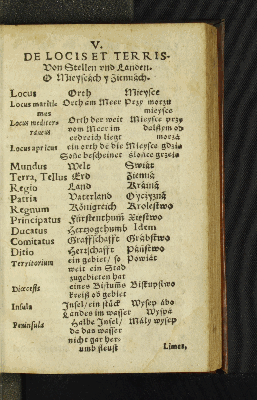 V.
DE LOCIS ET TERRIS.
Von Stellen vnd Landen.
O Mieyscách y Ziemiách.
Locus Orth Mieysce
Locus maritimes Orth am Meer Przy morzu mieysce
Locus mediterraneus Orth der weit vom Meer im erdreich liegt Mieysce przydálszym od morzá
Locus apricus ein orth de die Sonne bescheinet Mieysce gdzie słońce grzeie
Mundus Welt Swiát
Terra, Tellus Erd Ziemiá
Regio Land Kráiná
Patria Vaterland Oyczyzná
Regnum Königreich Krolestwo
Principatus Fürstenthum Xięstwo
Ducatus Hertzogthumb Idem
Comitatus Graffschafft Grábstwo
Ditio Herrschafft Páństwo
Territorium ein gebiet/ so weit ein Stad zugebieten hat Powiát
Diœcesis eines Bistums kreiß od gebiet Biskupstwo
Insula Insel/ ein stück Landes im wasser Wysep ábo Wyspá
Peninsula Halbe Insel/ da das wasser nicht gar herumb fleust Máły wysep
Limes,